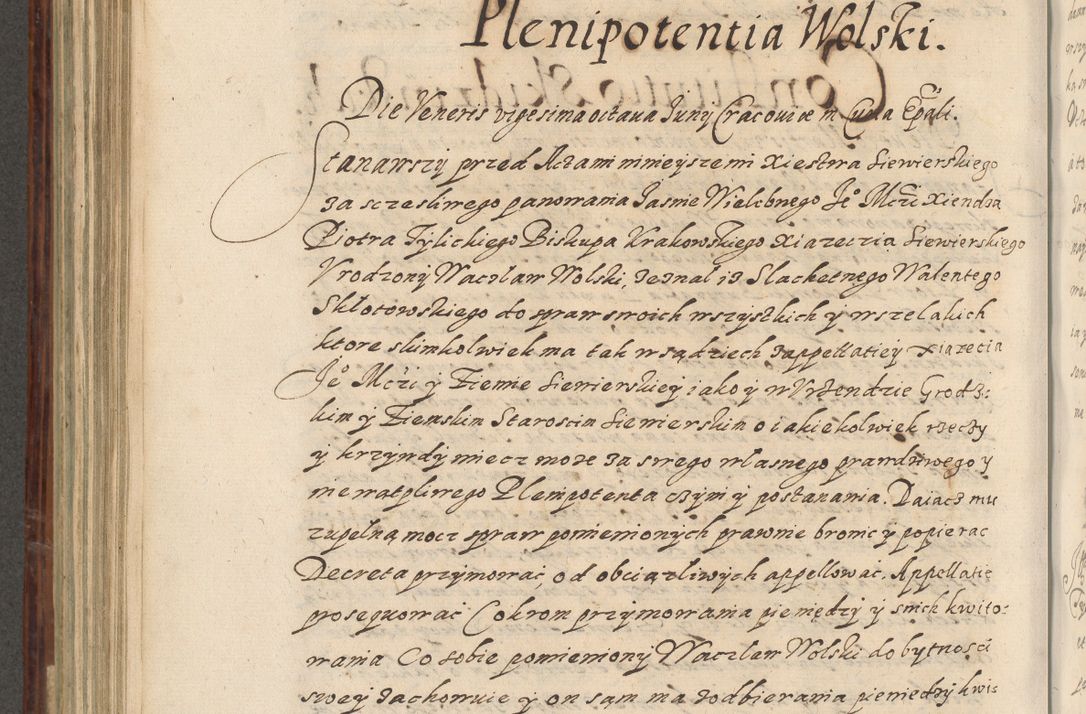 Plenipotentia Wolski.
Die Veneris vigesima octaua Iuny Cracouiæ in Curia Epali.
Stanawszy przed Actami ninieyszemi Xiestwa Siewierskiego
za sczesliwego panowania Jasnie Wielebnego Je° Mczi Xiendza
Piotra Tylickiego Biskupa Krakowskiego Xiazeczia Siewierskiego
Vrodzony Waczlaw Wolski, zeznal iz Slachetnego Walentego
Skłotowskiego do spraw swoich wszystkich y wszelakich
ktore skimkolwiek ma tak w sądziech zappellatiey xiazecia
Je° Mczi y Ziemie Siewierskiey iako y w Vrzendzie Grodz:
kim y Ziemskim Staroscim Siewierskim o iakiekolwiek rzeczy
y krzywdy miecz moze za swego własnego prawdziwego y
niewatpliwego Plenipotenta czyni y postanawia. Daiacz mu
zupelną mocz spraw pomienionych prawnie bronic y popierac
Decreta przymować, od obciązliwych appellować, Appellatie
prosequować Cokrom przymowania pieniędzy y snich kwito:
wania Co sobie pomieniony Waczlaw Wolski do bytnosci
swey zachowuie y on sąm ma zodbierania pieniedzy kwi: